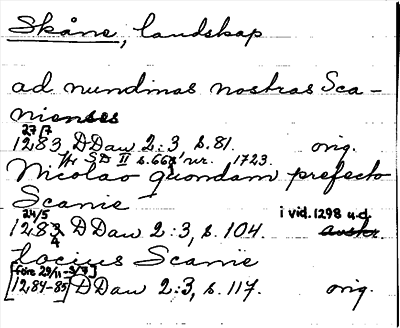 Skåne, landskap
ad nundinas nostras Sca-
nienses
27/7
1283 DDan 2:3, s. 81. orig.
Jfr SD II s. 668 nr. 1723.
Nicolao quondam prefecto
Scanie
24/5 i vid. 1298 u.d.
1283 DDan 2:3, s. 104. avskr.
4
totius Scanie
[före 29/11 - 3/7]
[1284-85] DDan 2:3, s. 117. orig.